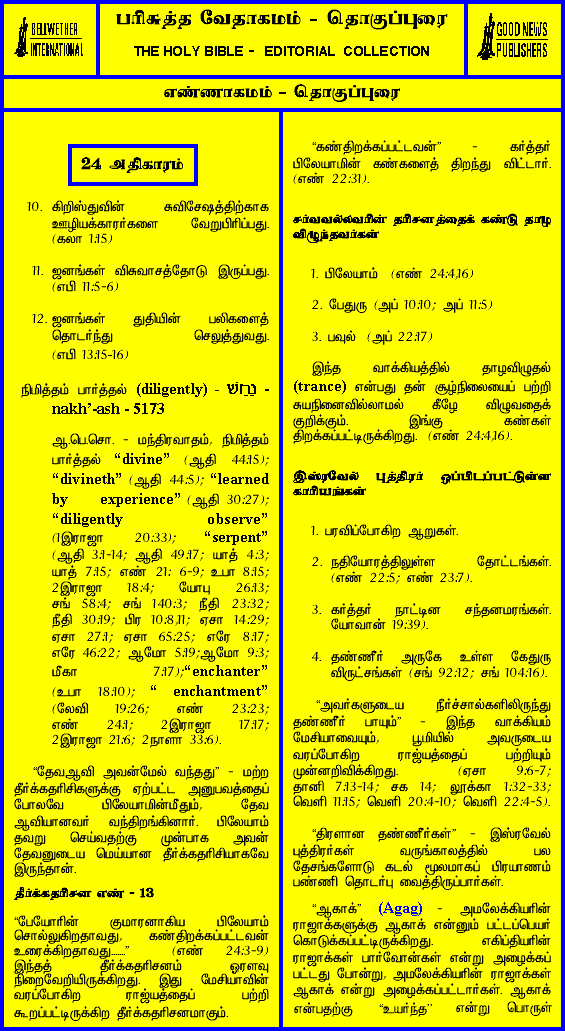 BELLWETHER
INTERNATIONAL
பரிசுத்த வேதாகமம் - தொகுப்புரை
THE HOLY BIBLE - EDITORIAL COLLECTION
GOOD NEWS
PUBLISHERS
எண்ணாகமம் - தொகுப்புரை
24 அதிகாரம்
10. கிறிஸ்துவின் சுவிசேஷத்திற்காக
ஊழியக்காரர்களை வேறுபிரிப்பது.
(கலா 1:15)
11. ஜனங்கள் விசுவாசத்தோடு இருப்பது.
(எபி 11:5-6)
12. ஜனங்கள் துதியின் பலிகளைத்
தொடர்ந்து செலுத்துவது.
(எபி 13:15-16)
நிமித்தம் பார்த்தல் (diligently) - נָחַשׁ -
nakh’-ash - 5173
ஆ.பெ.சொ. - மந்திரவாதம், நிமித்தம்
பார்த்தல் “divine” (ஆதி 44:15);
“divineth” (ஆதி 44:5); “learned
by experience” (ஆதி 30:27);
“diligently observe”
(1இராஜா 20:33); “serpent”
(ஆதி 3:1-14; ஆதி 49:17; யாத் 4:3;
யாத் 7:15; எண் 21: 6-9; உபா 8:15;
2இராஜா 18:4; யோபு 26:13;
சங் 58:4; சங் 140:3; நீதி 23:32;
நீதி 30:19; பிர 10:8,11; ஏசா 14:29;
ஏசா 27:1; ஏசா 65:25; எரே 8:17;
எரே 46:22; ஆமோ 5:19;ஆமோ 9:3;
மீகா 7:17);“enchanter”
(உபா 18:10); “ enchantment”
(லேவி 19:26; எண் 23:23;
எண் 24:1; 2இராஜா 17:17;
2இராஜா 21:6; 2நாளா 33:6).
“தேவஆவி அவன்மேல் வந்தது” - மற்ற
தீர்க்கதரிசிகளுக்கு ஏற்பட்ட அனுபவத்தைப்
போலவே பிலேயாமின்மீதும், தேவ
ஆவியானவர் வந்திறங்கினார். பிலேயாம்
தவறு செய்வதற்கு முன்பாக அவன்
தேவனுடைய மெய்யான தீர்க்கதரிசியாகவே
இருந்தான்.
தீர்க்கதரிசன எண் - 13
“பேயோரின் குமாரனாகிய பிலேயாம்
சொல்லுகிறதாவது, கண்திறக்கப்பட்டவன்
உரைக்கிறதாவது......” (எண் 24:3-9)
இந்தத் தீர்க்கதரிசனம் ஓரளவு
நிறைவேறியிருக்கிறது. இது மேசியாவின்
வரப்போகிற ராஜ்யத்தைப் பற்றி
கூறப்பட்டிருக்கிற தீர்க்கதரிசனமாகும்.
“கண்திறக்கப்பட்டவன்” - கர்த்தர்
பிலேயாமின் கண்களைத் திறந்து விட்டார்.
(எண் 22:31).
சர்வவல்லவரின் தரிசனத்தைக் கண்டு தாழ
விழுந்தவர்கள்
1. பிலேயாம் (எண் 24:4,16)
2. பேதுரு (அப் 10:10; அப் 11:5)
3. பவுல் (அப் 22:17)
இந்த வாக்கியத்தில் தாழவிழுதல்
(trance) என்பது தன் சூழ்நிலையைப் பற்றி
சுயநினைவில்லாமல் கீழே விழுவதைக்
குறிக்கும். இங்கு கண்கள்
திறக்கப்பட்டிருக்கிறது. (எண் 24:4,16).
இஸ்ரவேல் புத்திரர் ஒப்பிடப்பட்டுள்ள
காரியங்கள்
1. பரவிப்போகிற ஆறுகள்.
2. நதியோரத்திலுள்ள தோட்டங்கள்.
(எண் 22:5; எண் 23:7).
3. கர்த்தர் நாட்டின சந்தனமரங்கள்.
யோவான் 19:39).
4. தண்ணீர் அருகே உள்ள கேதுரு
விருட்சங்கள் (சங் 92:12; சங் 104:16).
“அவர்களுடைய நீர்ச்சால்களிலிருந்து
தண்ணீர் பாயும்” - இந்த வாக்கியம்
மேசியாவையும், பூமியில் அவருடைய
வரப்போகிற ராஜ்யத்தைப் பற்றியும்
முன்னறிவிக்கிறது. (ஏசா 9:6-7;
தானி 7:13-14; சக 14; லூக்கா 1:32-33;
வெளி 11:15; வெளி 20:4-10; வெளி 22:4-5).
“திரளான தண்ணீர்கள்” - இஸ்ரவேல்
புத்திரர்கள் வருங்காலத்தில் பல
தேசங்களோடு கடல் மூலமாகப் பிரயாணம்
பண்ணி தொடர்பு வைத்திருப்பார்கள்.
“ஆகாக்” (Agag) - அமலேக்கியரின்
ராஜாக்களுக்கு ஆகாக் என்னும் பட்டப்பெயர்
கொடுக்கப்பட்டிருக்கிறது. எகிப்தியரின்
ராஜாக்கள் பார்வோன்கள் என்று அழைக்கப்
பட்டது போன்று, அமலேக்கியரின் ராஜாக்கள்
ஆகாக் என்று அழைக்கப்பட்டார்கள். ஆகாக்
என்பதற்கு “உயர்ந்த” என்று பொருள்